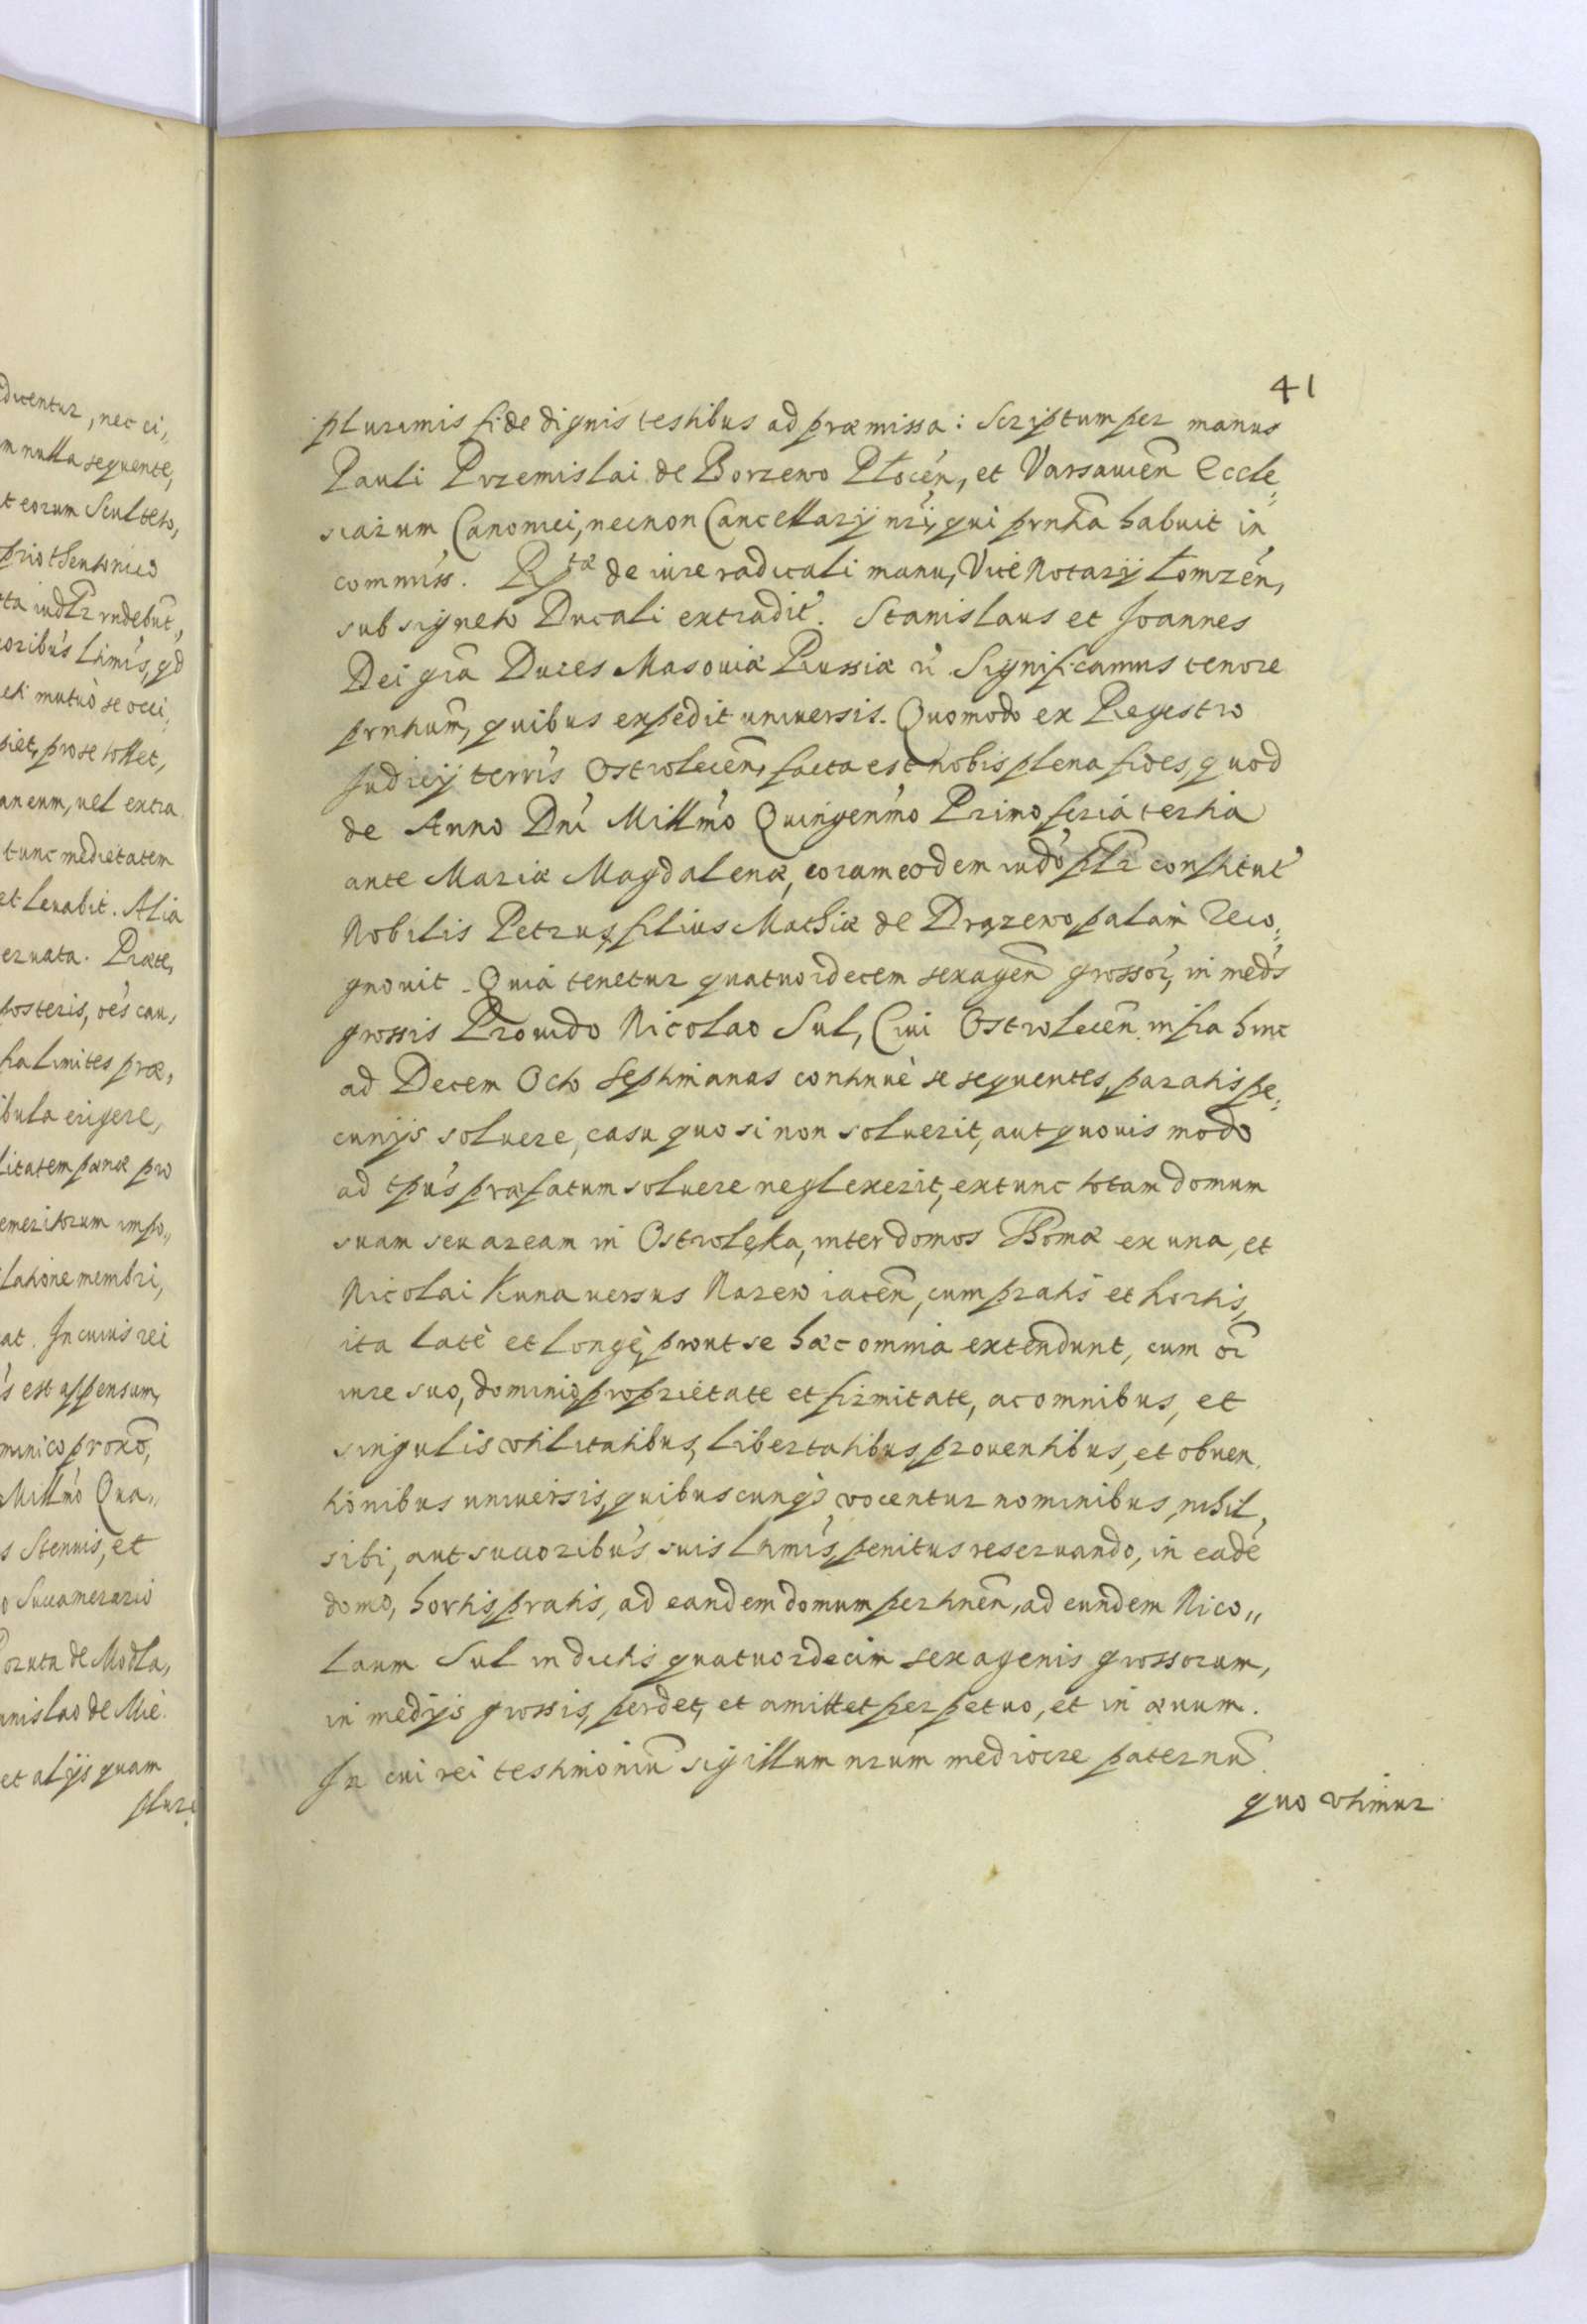 ducentur, nec ci,
m nulla sequente,
t eorum Sculteto,
prio thentonico
ta iudłr rndebūt,
oribús Łtimís, qd
eti mutuò se occi,
piet, pro se tollet,
aneum, uel extra
tunc medietatem
et leuabit. Alia
eruata. Præte,
posteris, oés cau,
limites præ,
ibula erigere,
litatem pænæ pro
emeritorum impo,,
latione membri,
at. In cuius rei
s est appensum,
minico proxō,
Millmo Qua,,
s Stennis, et
o Succamerario
oruta de Modla,
nislao de Mie
et alijs quam
plure
41
plurimis fide dignis testibus ad præmissa: Scriptum per manus
Pauli Przemislai de Borzewo Plocén, et Varsauień Eccle,
siarum Canonici, necnon Cancellarij nrĩ, qui prntia habuit in
commíss. Rptæ de iure radicali manu, Vice Notarij Łomzén,
sub signeto Ducali extradit. Stanislaus et Joannes
Dei gra Duces Masouiæ Russiæ ?c Significamus tenore
prntium, quibus expedit uniuersis. Quomodo ex Regestro
Judicij terrís Ostrolecen, facta est nobis plena fides, quod
de Anno Dni Millmo Quingenmo Primo feria tertia
ante Mariæ Magdalenæ, coram eodem iudo płr constitut
Nobilis Petrus, filius Mathiæ de Drązewo, palam reco,
gnouit. Quia tenetur quatuordecem sexagen grossor, in meds
grossis Prouido Nicolao Sul, Ciui Ostrolecen infra hinc
ad Decem Octo Septimanas continuè se sequentes, paratis pe,
cunijs soluere, casu quo si non soluerit, aut quouis modo
ad tpús præfatum soluere neglexerit, extunc totam domum
suam seu aream in Ostrolęka, inter domos Bomæ ex una, et
Nicolai Kuna uersus Narew iacen, cum pratis et hortis,
ita latè et longè, prout se hæc omnia extendunt, cum oi
iure suo, dominio, proprietate et firmitate, ac omnibus, et
singulis vtilitatibus, libertatibus, prouentibus, et obuen,
tionibus uniuersis, quibuscunqs vocentur nominibus, nihil,
sibi, aut succoribús suis Ltimis, penitus reseruando, in eadé
domo, hortis, pratis, ad eandem domum pertinen, ad eundem Nico,,
laum Sul in dictis quatuordecim sexagenis grossorum,
in medijs grossis, perdet, et amittet perpetuo, et in æuum.
In cui rei testimoniu sigillum nrúm mediocre paternu
quo vtimur